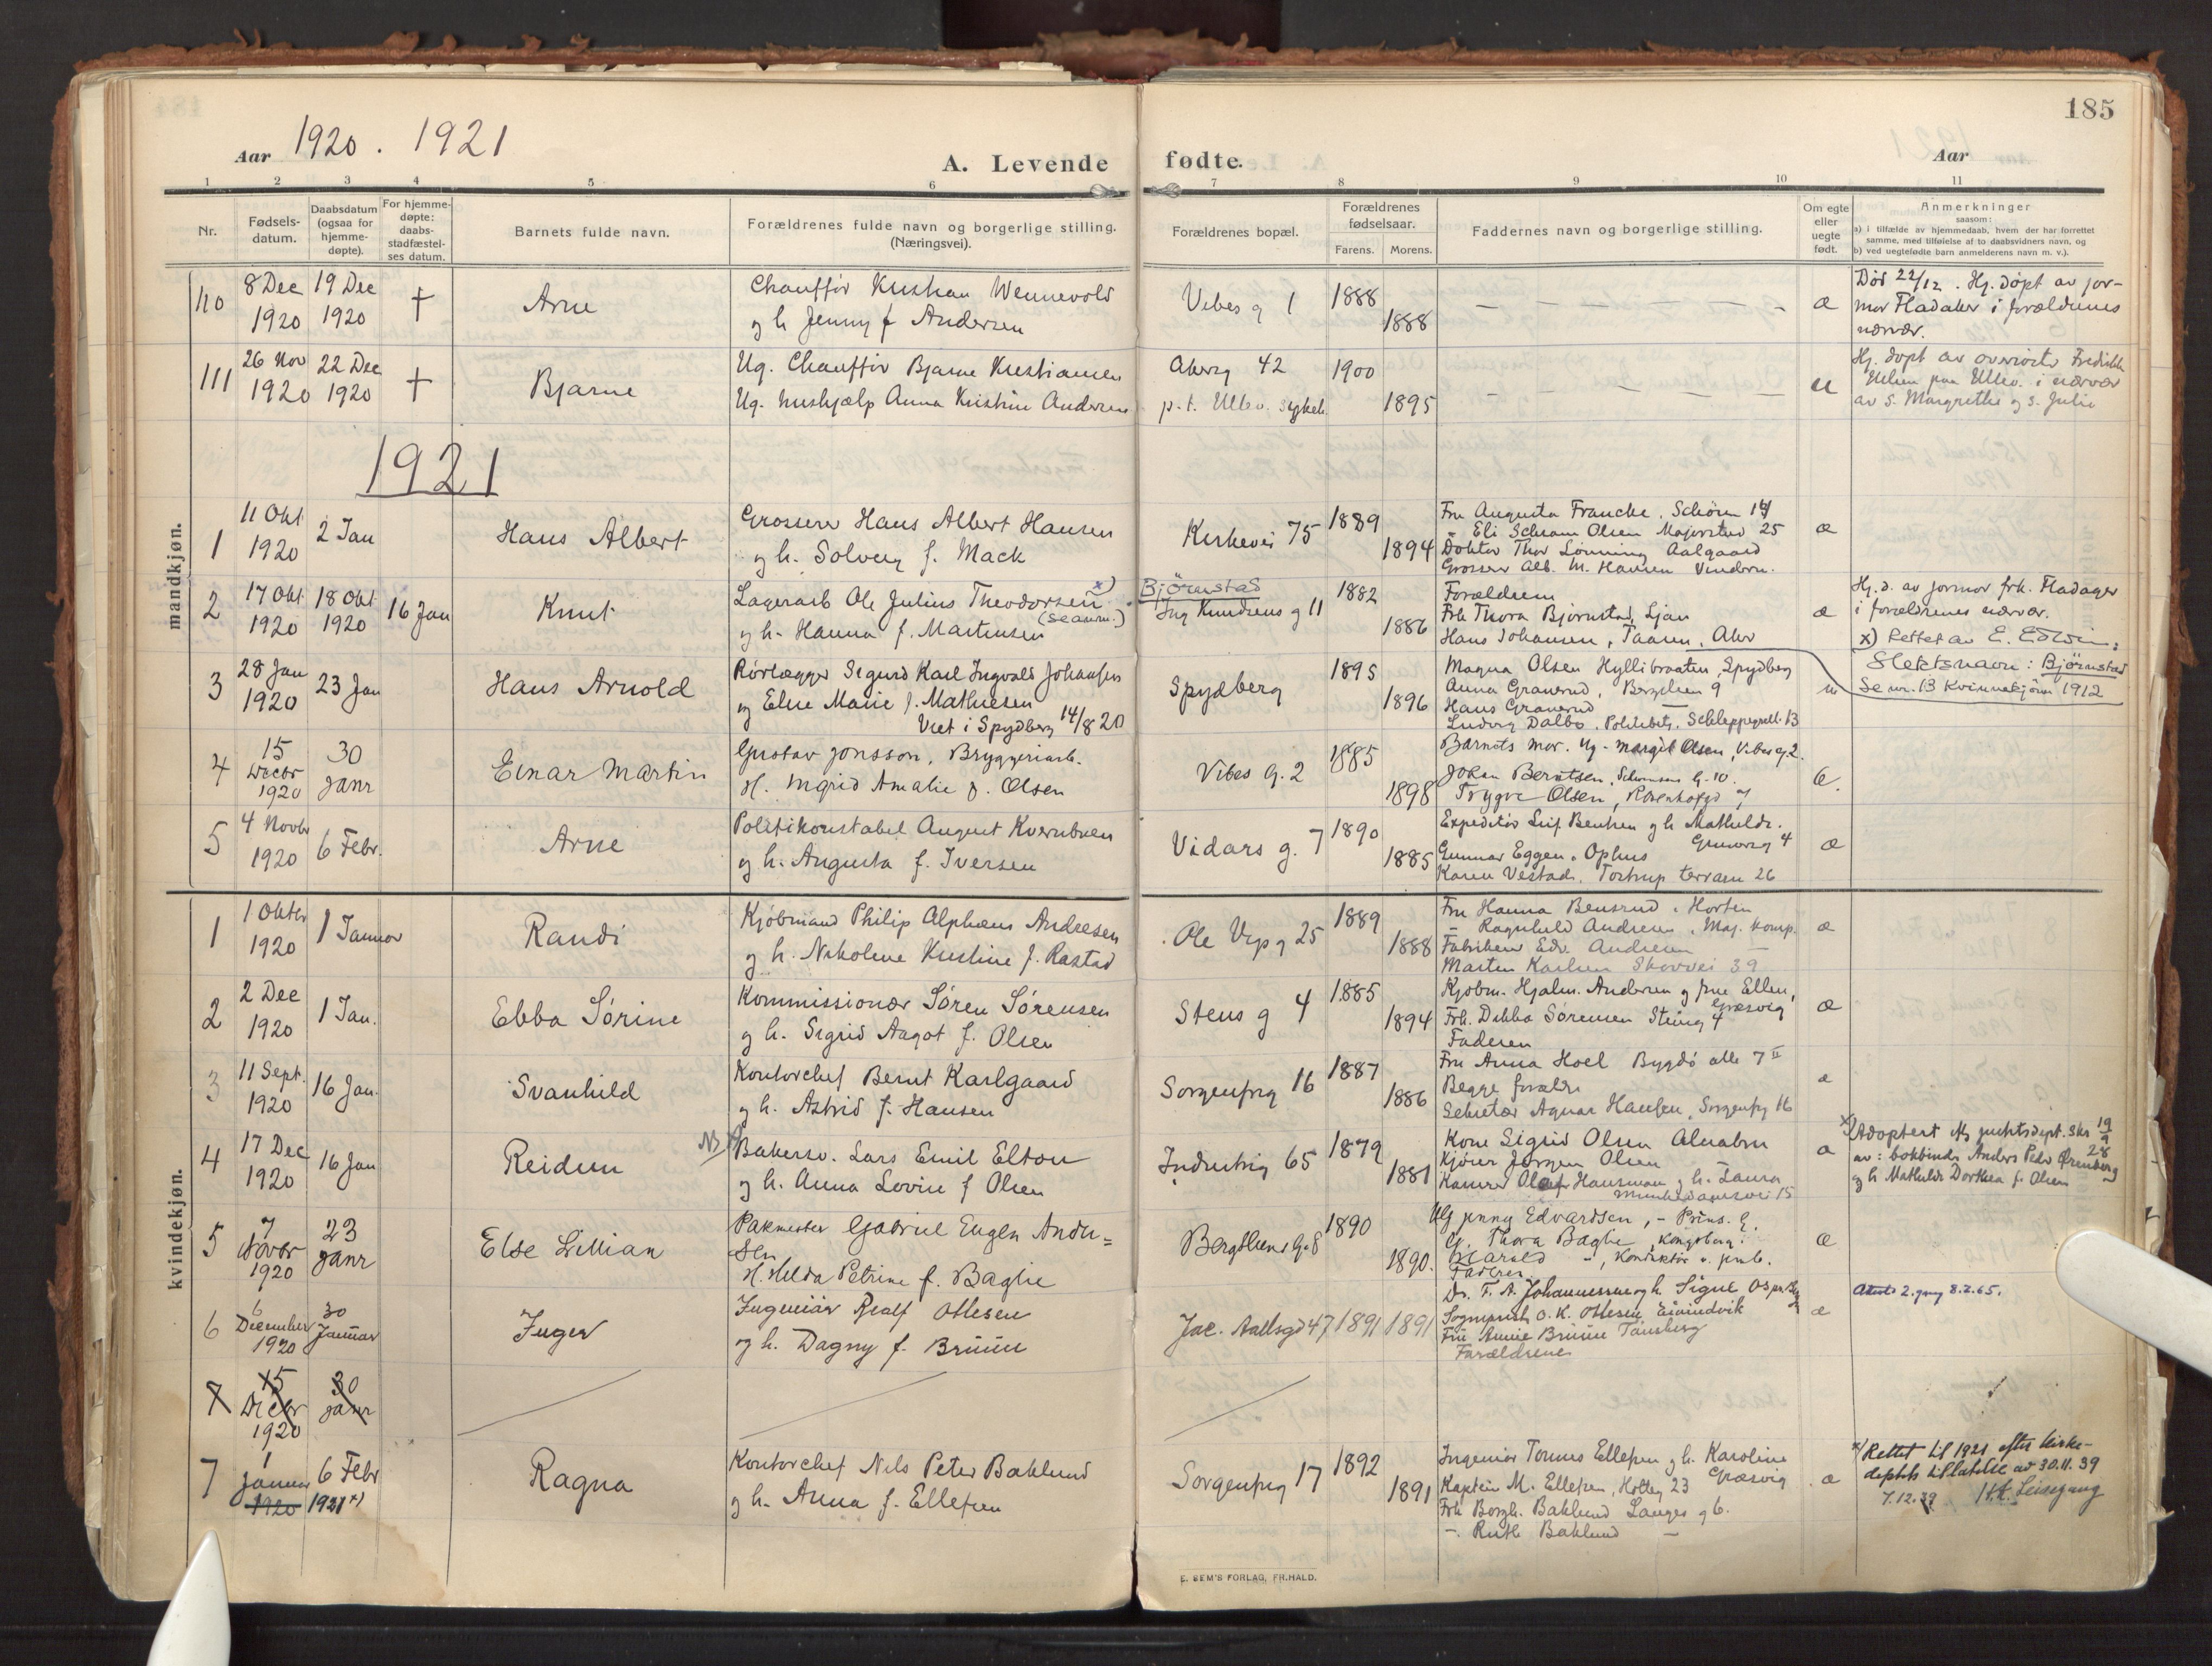 185
Aar 1920. 1921
A. Levende fødte.
Aar
1 2 3 4 5 6 7 8 9 10 11
Nr.
Fødsels-
datum.
Daabsdatum
(ogsaa for
hjemme-
døpte).
For hjemme-
døpte:
daabs-
stadfæstel-
ses datum.
Barnets fulde navn.
Forældrenes fulde navn og borgerlige stilling.
(Næringsvei).
Forældrenes bopæl.
Forældrenes
fødselsaar.
Farens. Morens.
Faddernes navn og borgerlige stilling.
Om egte
eller
uegte
født.
Anmerkninger
saasom:
a) i tilfælde av hjemmedaab, hvem der har forrettet
samme, med tilføielse af to daabsvidners navn, og
b) ved uegtefødte barn anmelderens navn m. v.).
110
8 Dec
1920
19 Dec
1920
†
Arne
Chauffør Kristian Wennevold
og h. Jenny f. Andersen
Vibes g 1
1888
1888
æ
Død 22/12. Hj. døpt av jor-
mor Fladager i forældrenes
nærvær.
111
26 Nov
1920
22 Dec
1920
†
Bjarne
Ug. Chauffør Bjarne Kristiansen
Ug. hushjælp Anna Kristine Andersen
Akersg 42
p.t. Ullev. sykeh
1900
1895
u
Hj. døpt av oversøster Fredrikke
paa Ullev. i nærvær
av s. Margrethe og s. Julie
1921
mandkjøn.
1
11 Okt
1920
2 Jan
Hans Albert
Grosserer Hans Albert Hansen
og h. Solveig f. Mack
Kirkevei 75
1889
1894
Fru Augusta Francke. Schøns 14
" Eli Schram Olsen Majorstuv 25
Doktor Thor Lønning Aalgaard
Grosserer Alb. M. Hansen Vindern.
æ
2
17 Okt
1920
18 Okt
1920
16 Jan
Knut
Lagerarb Ole Julius Theodorsen x)
(Se anm.)
og h. Hanna f. Martinsen
Bjørnstad
Ing Knudsens g 11
1882
1886
Forældrene
Frk Thora Bjørnstad, Ljan
Hans Johansen, Taasen, Aker
æ
Hj. d. av jormor frk. Fladager
i forældrenes nærvær.
x) Rettet av E. Edwin.
Slektsnavn: Bjørnstad
Se nr. 13 Kvinnekjønn 1912
3
28 Jan
1920
23 Jan
Hans Arnold
Rørlægger Sigurd Karl Ingvald Johansen
og Else Marie f. Mathiesen
Viet i Spydberg 14/8 20
Spydberg
1895
1896
Magna Olsen Hyllibraaten, Spydberg
Anna Granerud, Bergslien 9
Hans Granerud
Ludvig Dalbo. Politibetj. Schleppegrell. 13
u
4
15
Decbr
1920
30
Janr
Einar Martin
Gustav Jonsson, Bryggeriarb.
H. Ingrid Amalie f. Olsen
Vibes G. 2
1885
1898
Barnets mor. Ug. Margit Olsen, Vibes g. 2.
Johan Berntsen, G. 10.
Trygve Olsen, Rosenhofgd 7
Æ.
5
4 Novbr
1920
6 Febr.
Arne
Politikonstabel August Kvernbuen
og h. Augusta f. Iversen
Vidars g. 7
1890
1885
Expeditør Leif Bentsen og h. Mathilde.
4
Gunnar Eggen. Ophus
Karen Vestad. Tostrup terrasse 26
æ
kvindekjøn.
1
1 Oktbr
1920
1 Januar
Randi
Kjøbmand Philip Alphæus Andresen
og h. Nikoline Kristine f. Rastad
Ole Vigs g 25
1889
1888
Fru Hanna Bensrud. Horten
– Ragnhild Andresen, Maj. komp.
Fabrikeier Edv. Andresen –
Marten Karlsen Skovvei 39
æ
2
2 Dec
1920
1 Jan.
Ebba Sørine
Kommissionær Søren Sørensen
og h. Sigrid Aagot f. Olsen
Stens g 4
1885
1894
Kjøbm. Hjalm. Andersen og frue Ellen,
Græsvig
Frk. Debba Sørensen Stensg 4
Faderen
æ
3
11 Sept.
1920
16 Jan.
Svanhild
Kontorchef Bernt Karlgaard
og h. Astrid f. Hansen
Sorgenfrig 16
1887
1886
Fru Anna Hoel Bygdø alle 7 II
Begge forældre
Sekretær Agnar Hansen, Sorgenfrig 16
æ
4
17 Dec
1920
16 Jan
Reidun
NB x)
Bakersv. Lars Emil Elton
og h. Anna Lovise f Olsen
Industrig 65
1879
1881
Kone Sigrid Olsen Alnabru
Kjører Jørgen Olsen
Kasserer Olaf Hansman og h. Laura
Munkedamsvei 15
æ
x) Adoptert iflg justisdept. skr 19/9 28
av: bokbinder Anders Peder Ørenberg
og h Mathilde Dorthea f. Olsen
5
7
Novbr
1920
23
Janr
Else Lillian
Pakmester Gabriel Eugen Ander=
sen
H. Hilda Petrine f. Baghe
Bergsliens G. 8
1890
1890.
Ug Jenny Edvardsen, – Prins. G.
G. Thora Baghe, Kongsberg.
Harald ", Konduktør
Faderen
æ
6
6
December
1920
30
Januar
Inger
Ingeniør Rolf Ottesen
og h. Dagny f. Bruun
Jac. Aallsgd 47
1891
1891
Dr. F. A. Johannessen og h. Signe
Sogneprest O. K. Ottesen Eivindvik
Fru Annie Bruun Tønsberg
Forældrene
æ
Attest 2. gang 8.2.65.
7
15
Decbr
1920
30
Janr
7
1
Januar
1920
6 Febr
1921 x)
Ragna
Kontorchef Nils Peter Baklund
og h. Anna f. Ellefsen
Sorgenfrig 17
1892
1891
Ingeniør Tomas Ellefsen og h. Karoline
Græsvig
Kaptein M. Ellefsen, Holteg 23
Frk Borgh. Baklund Langes g 6.
–. Ruth Baklund –
æ
x) Rettet til 1921 efter kirke-
deptets tillatelse av 30.11.39
7.12.39 H.H. Leisegang
E. SEM'S FORLAG, FR.HALD.